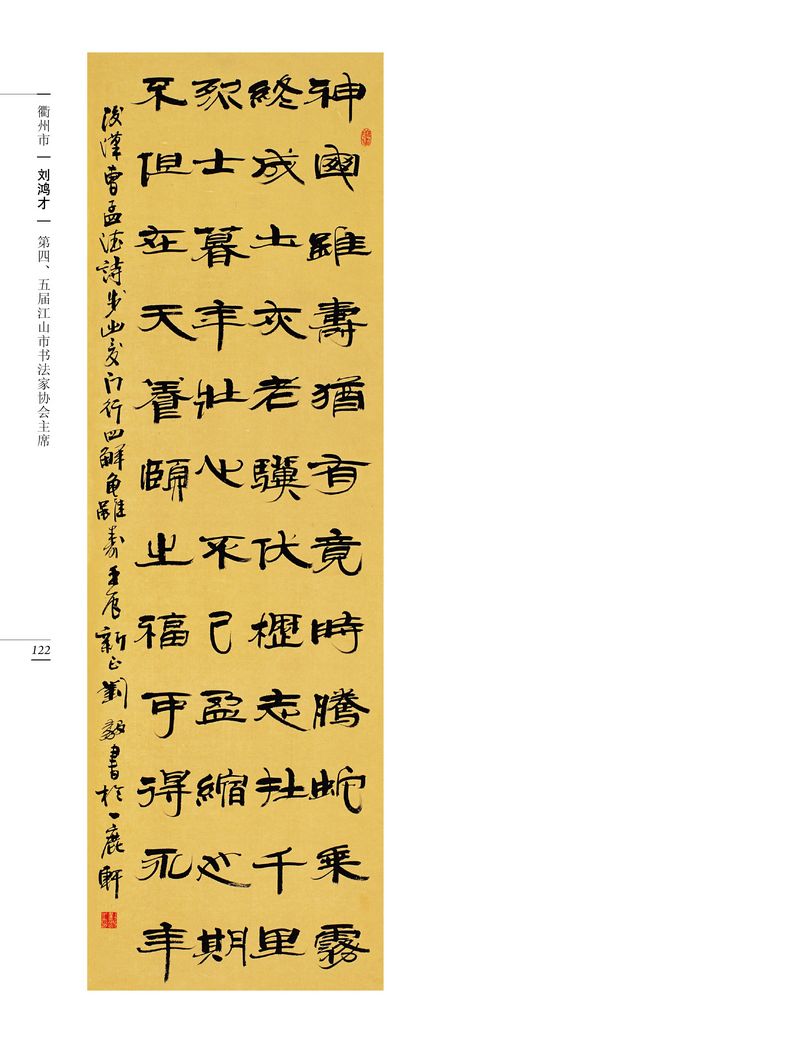 神國雖壽猶有竟時騰蛇乘霧
終成土灰老驥伏櫪志在千里
烈士暮年壯心不已盈縮之期
不但在天養頤之福可得永年
後漢曹孟德詩步出夏门行四解龜雖壽壬辰新正劉毅書於一鹿軒
衢州市 | 刘鸿才 | 第四、五届江山市书法家协会主席
122